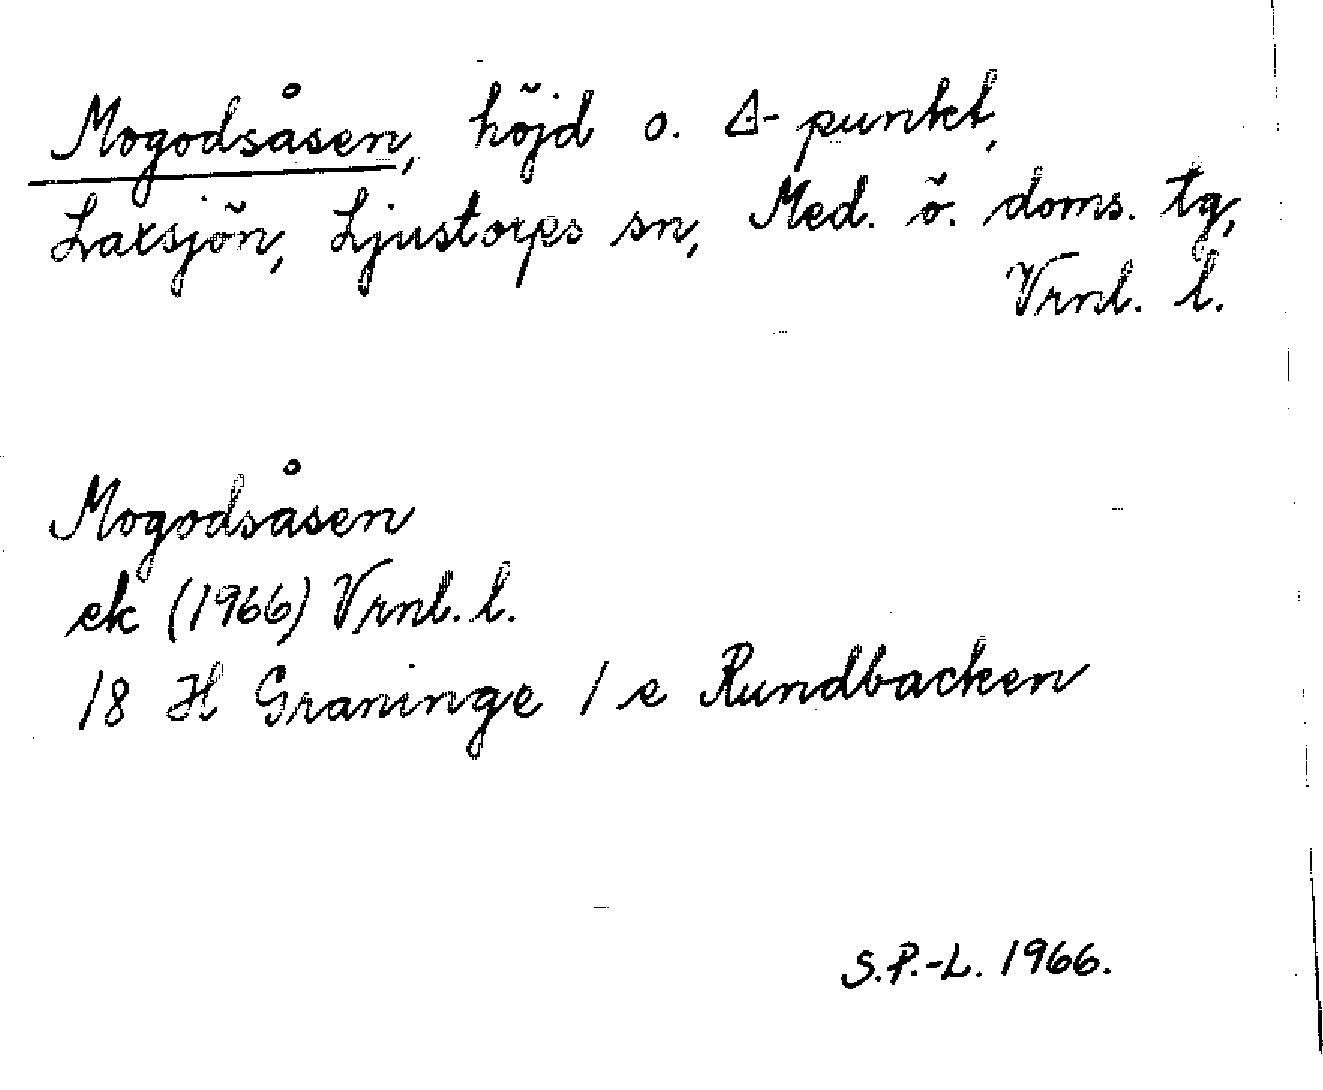 Mogodsåsen, höjd o. △-punkt,
Laxsjön, Ljustorps sn, Med. ö. doms. tg,
Vrnl. l.
Mogodsåsen
ek (1966) Vrnl. l.
18 H Graninge 1 e Rundbacken
S.P.-L. 1966.